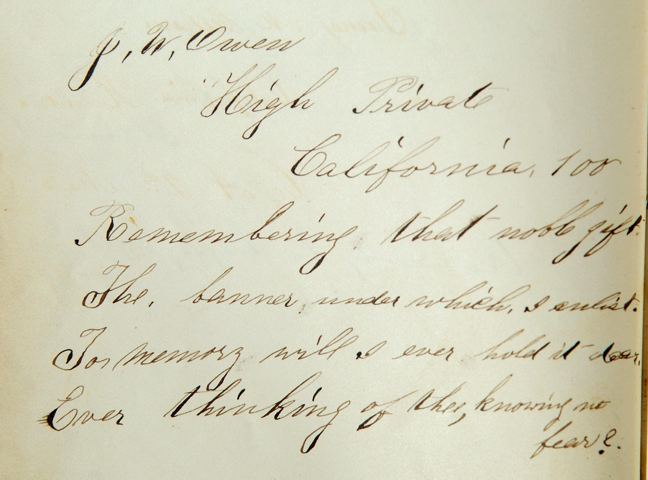 J. W. Owen
High Private
California, 100
Remembering, that noble gift.
The, banner, under which, I enlist.
For memory will I ever hold it dear,
Ever thinking of thee, knowing no
fear?.